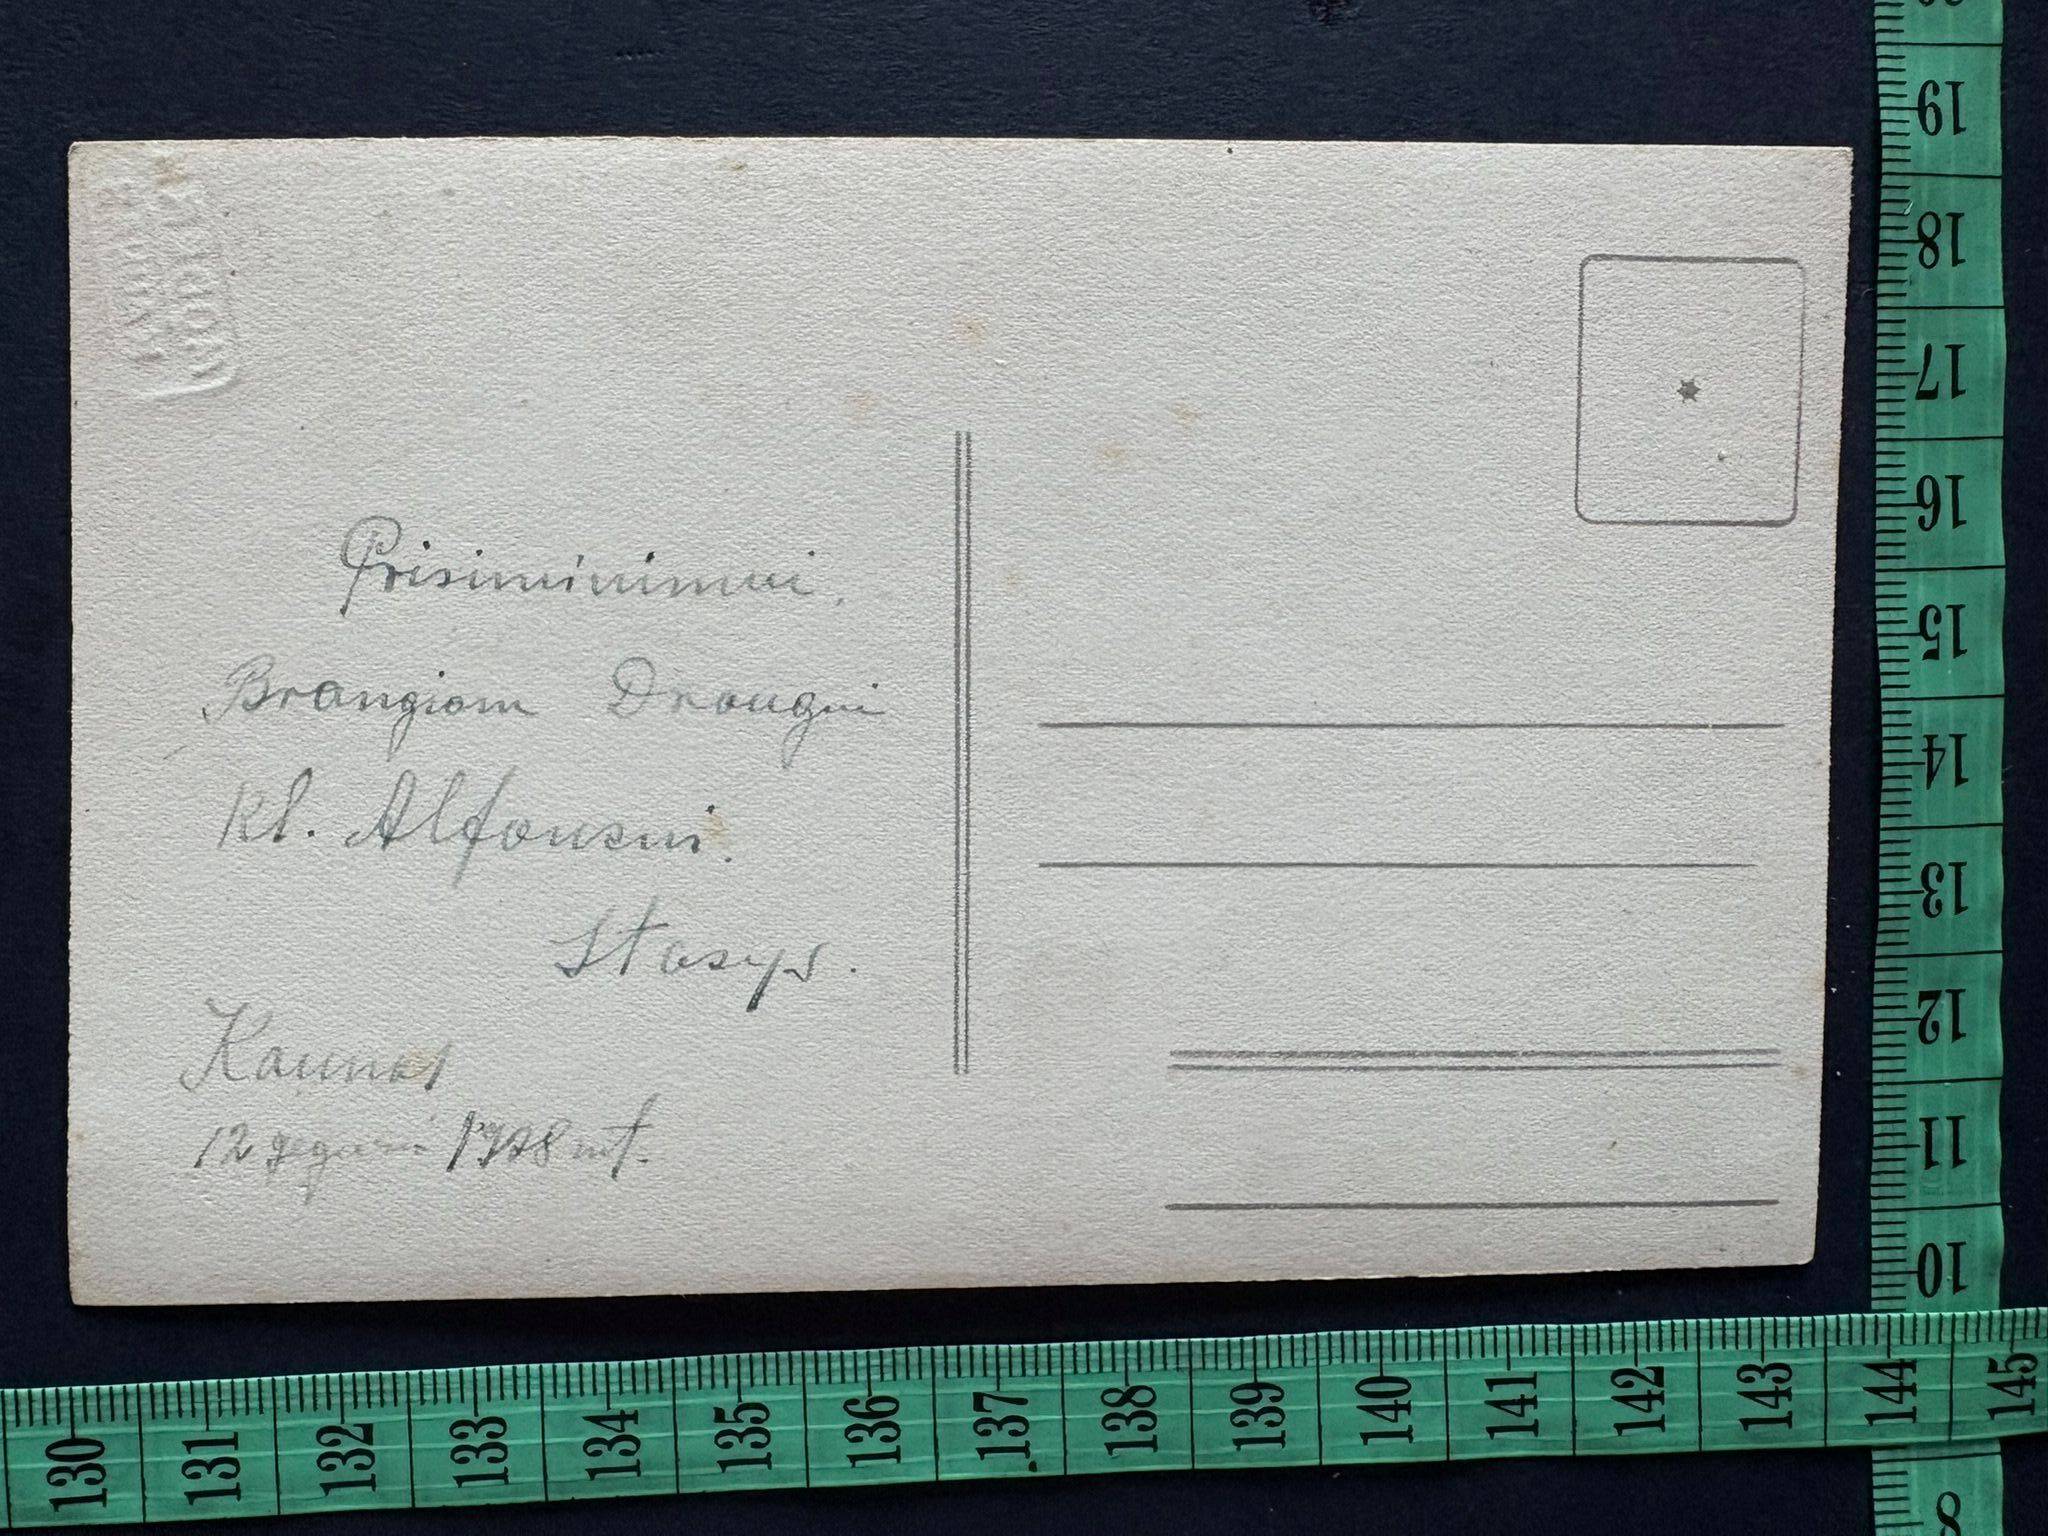 Prisiminimui.
Brangiam Draugui
kl. Alfonsui.
Stasys.
Kaunas
12 geguži 1928 mt.
19
18
17
16
15
14
13
12
11
10
8
130 131 132 133 134 135 136 137 138 139 140 141 142 143 144 145